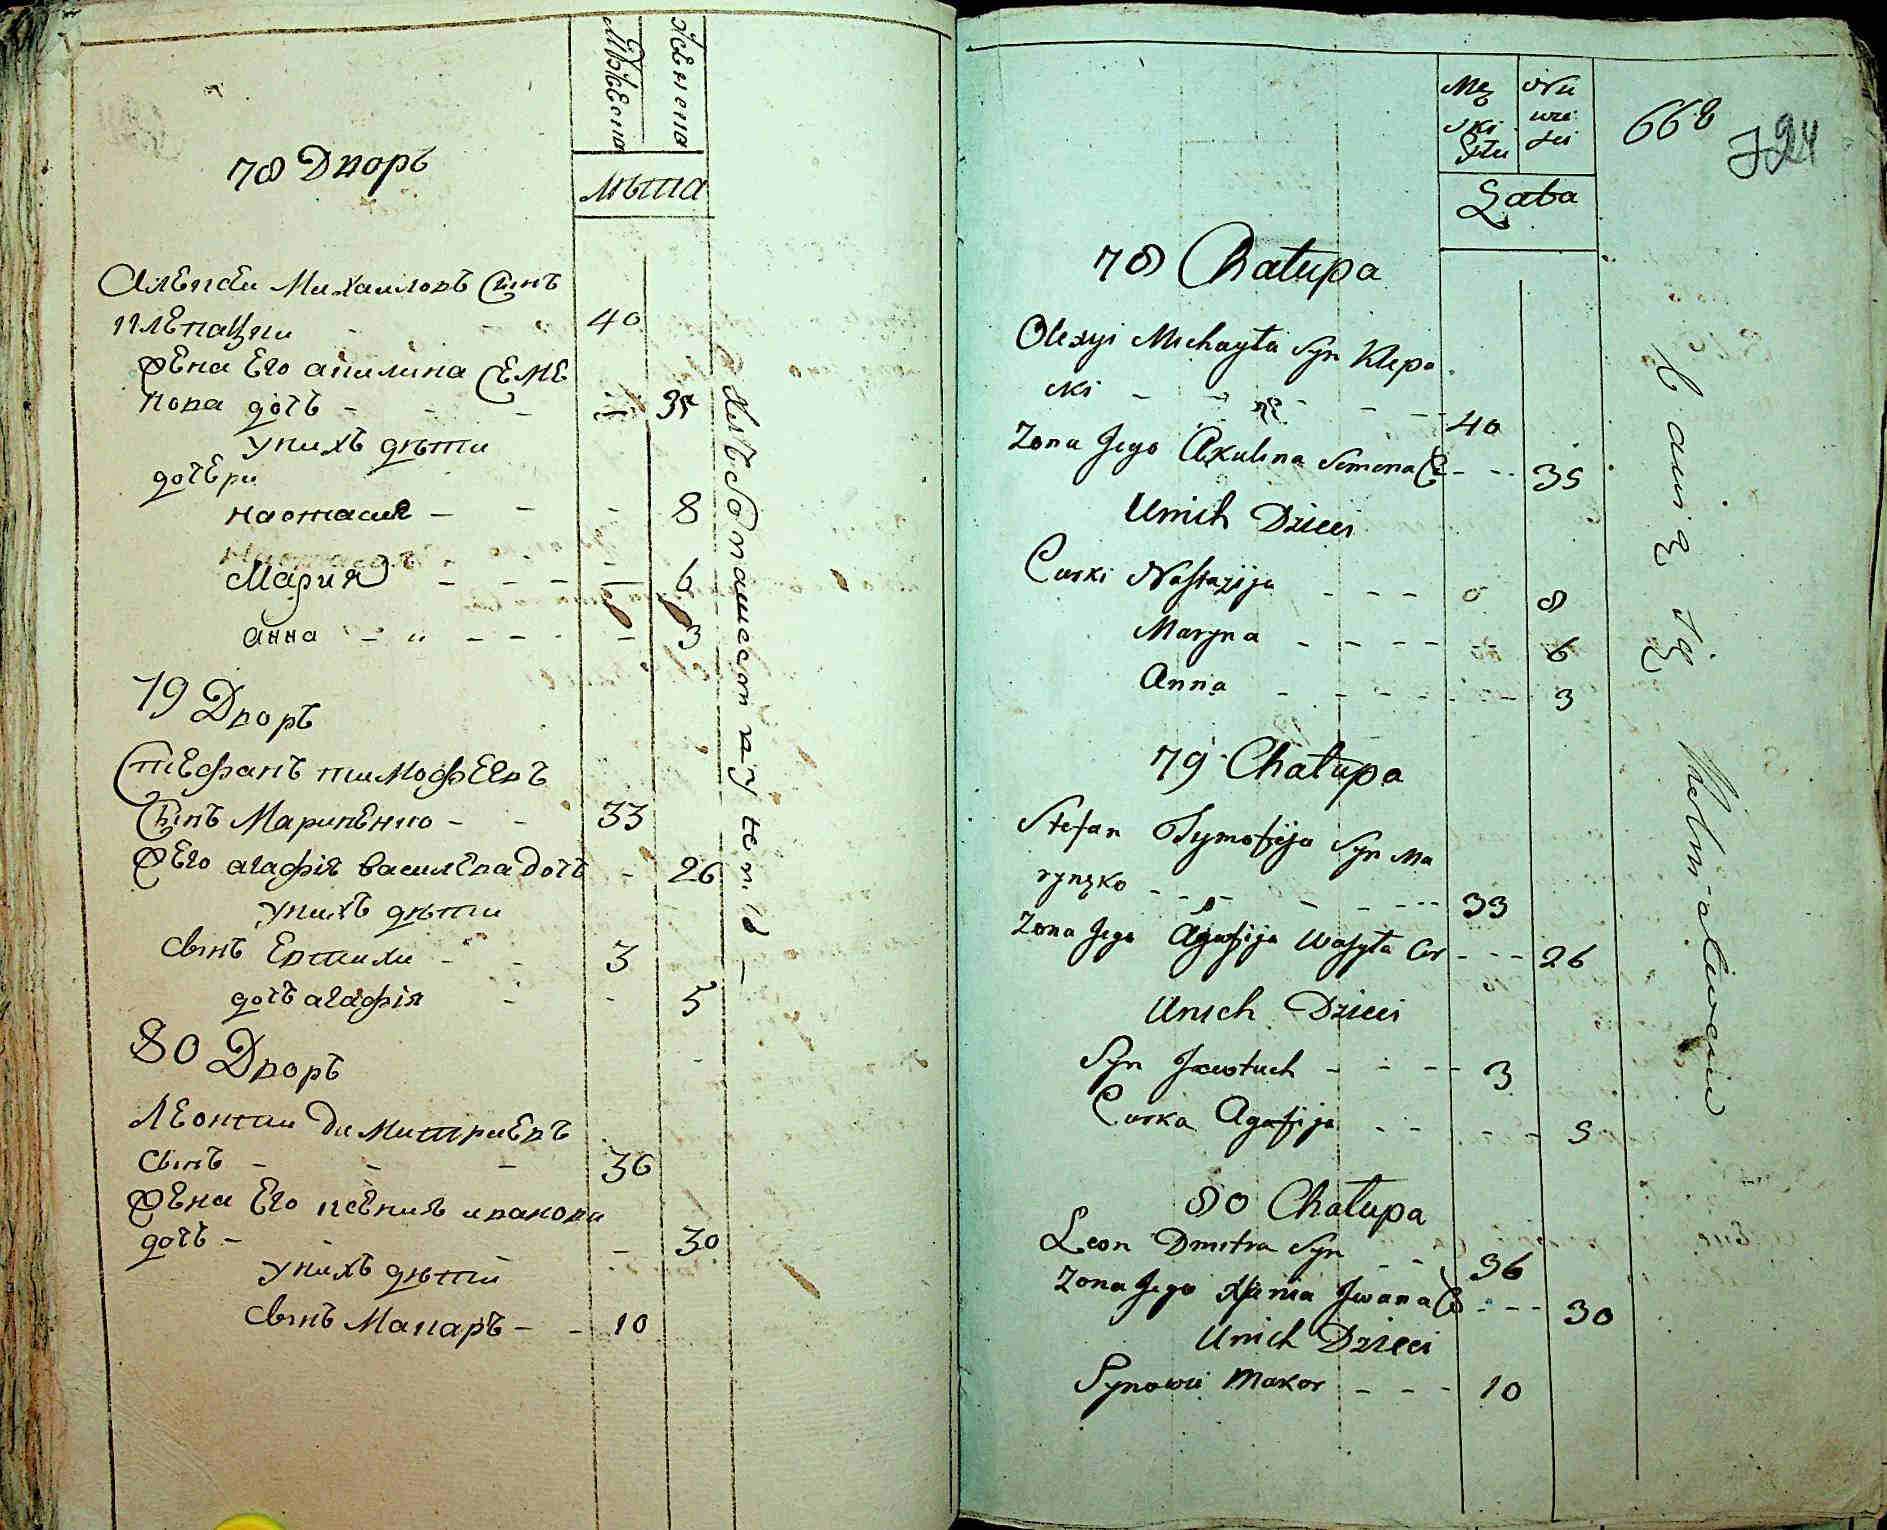 Мꙋжеска
Женска
Лѣта
78 Дворъ
Алеѯеи Михаиловъ Сынъ
Клепацки - - 40
Жена Его акилина Семе
нова дочъ - - - 35
У нихъ дѣти
дочери
Настасия - - - 8
Мария - - - 6
Анна - - - 3
79 Дворъ
Стефанъ тимофеевъ
Сынъ Мариненко - - 33
Ж Его агафія василева дочъ - 26
У нихъ дѣти
Сынъ Евтихи - - 3
дочъ агафія - - 5
80 Дворъ
Леонтии Димитриевъ
Сынъ - - - 36
Жена Его ксения иванова
дочъ - - - 30
У нихъ дѣти
Сынъ Макаръ - - 10
Męz
ski
Płci
Niu
wie
sci
Łata
668
78 Chałupa
Olexyi Michayła Syn Klepa
cki - - - 40
Zona Jego Akulina Semena C - - 35
Unich Dzieci
Curki Nastazija - - - 8
Maryna - - - - 6
Anna - - - - 3
79 Chałupa
Stefan Tymofija Syn Ma
rynęko - - - - 33
Zona Jego Agafija Wasyla Cor - - - 26
Unich Dzieci
Syn Jawtuch - - - - 3
Curka Agafija - - - - 5
80 Chałupa
Leon Dmitra Syn - - 36
Zona Jego Xienia Jwana C - - - 30
Unich Dzieci
Synowie Makar - - - 10